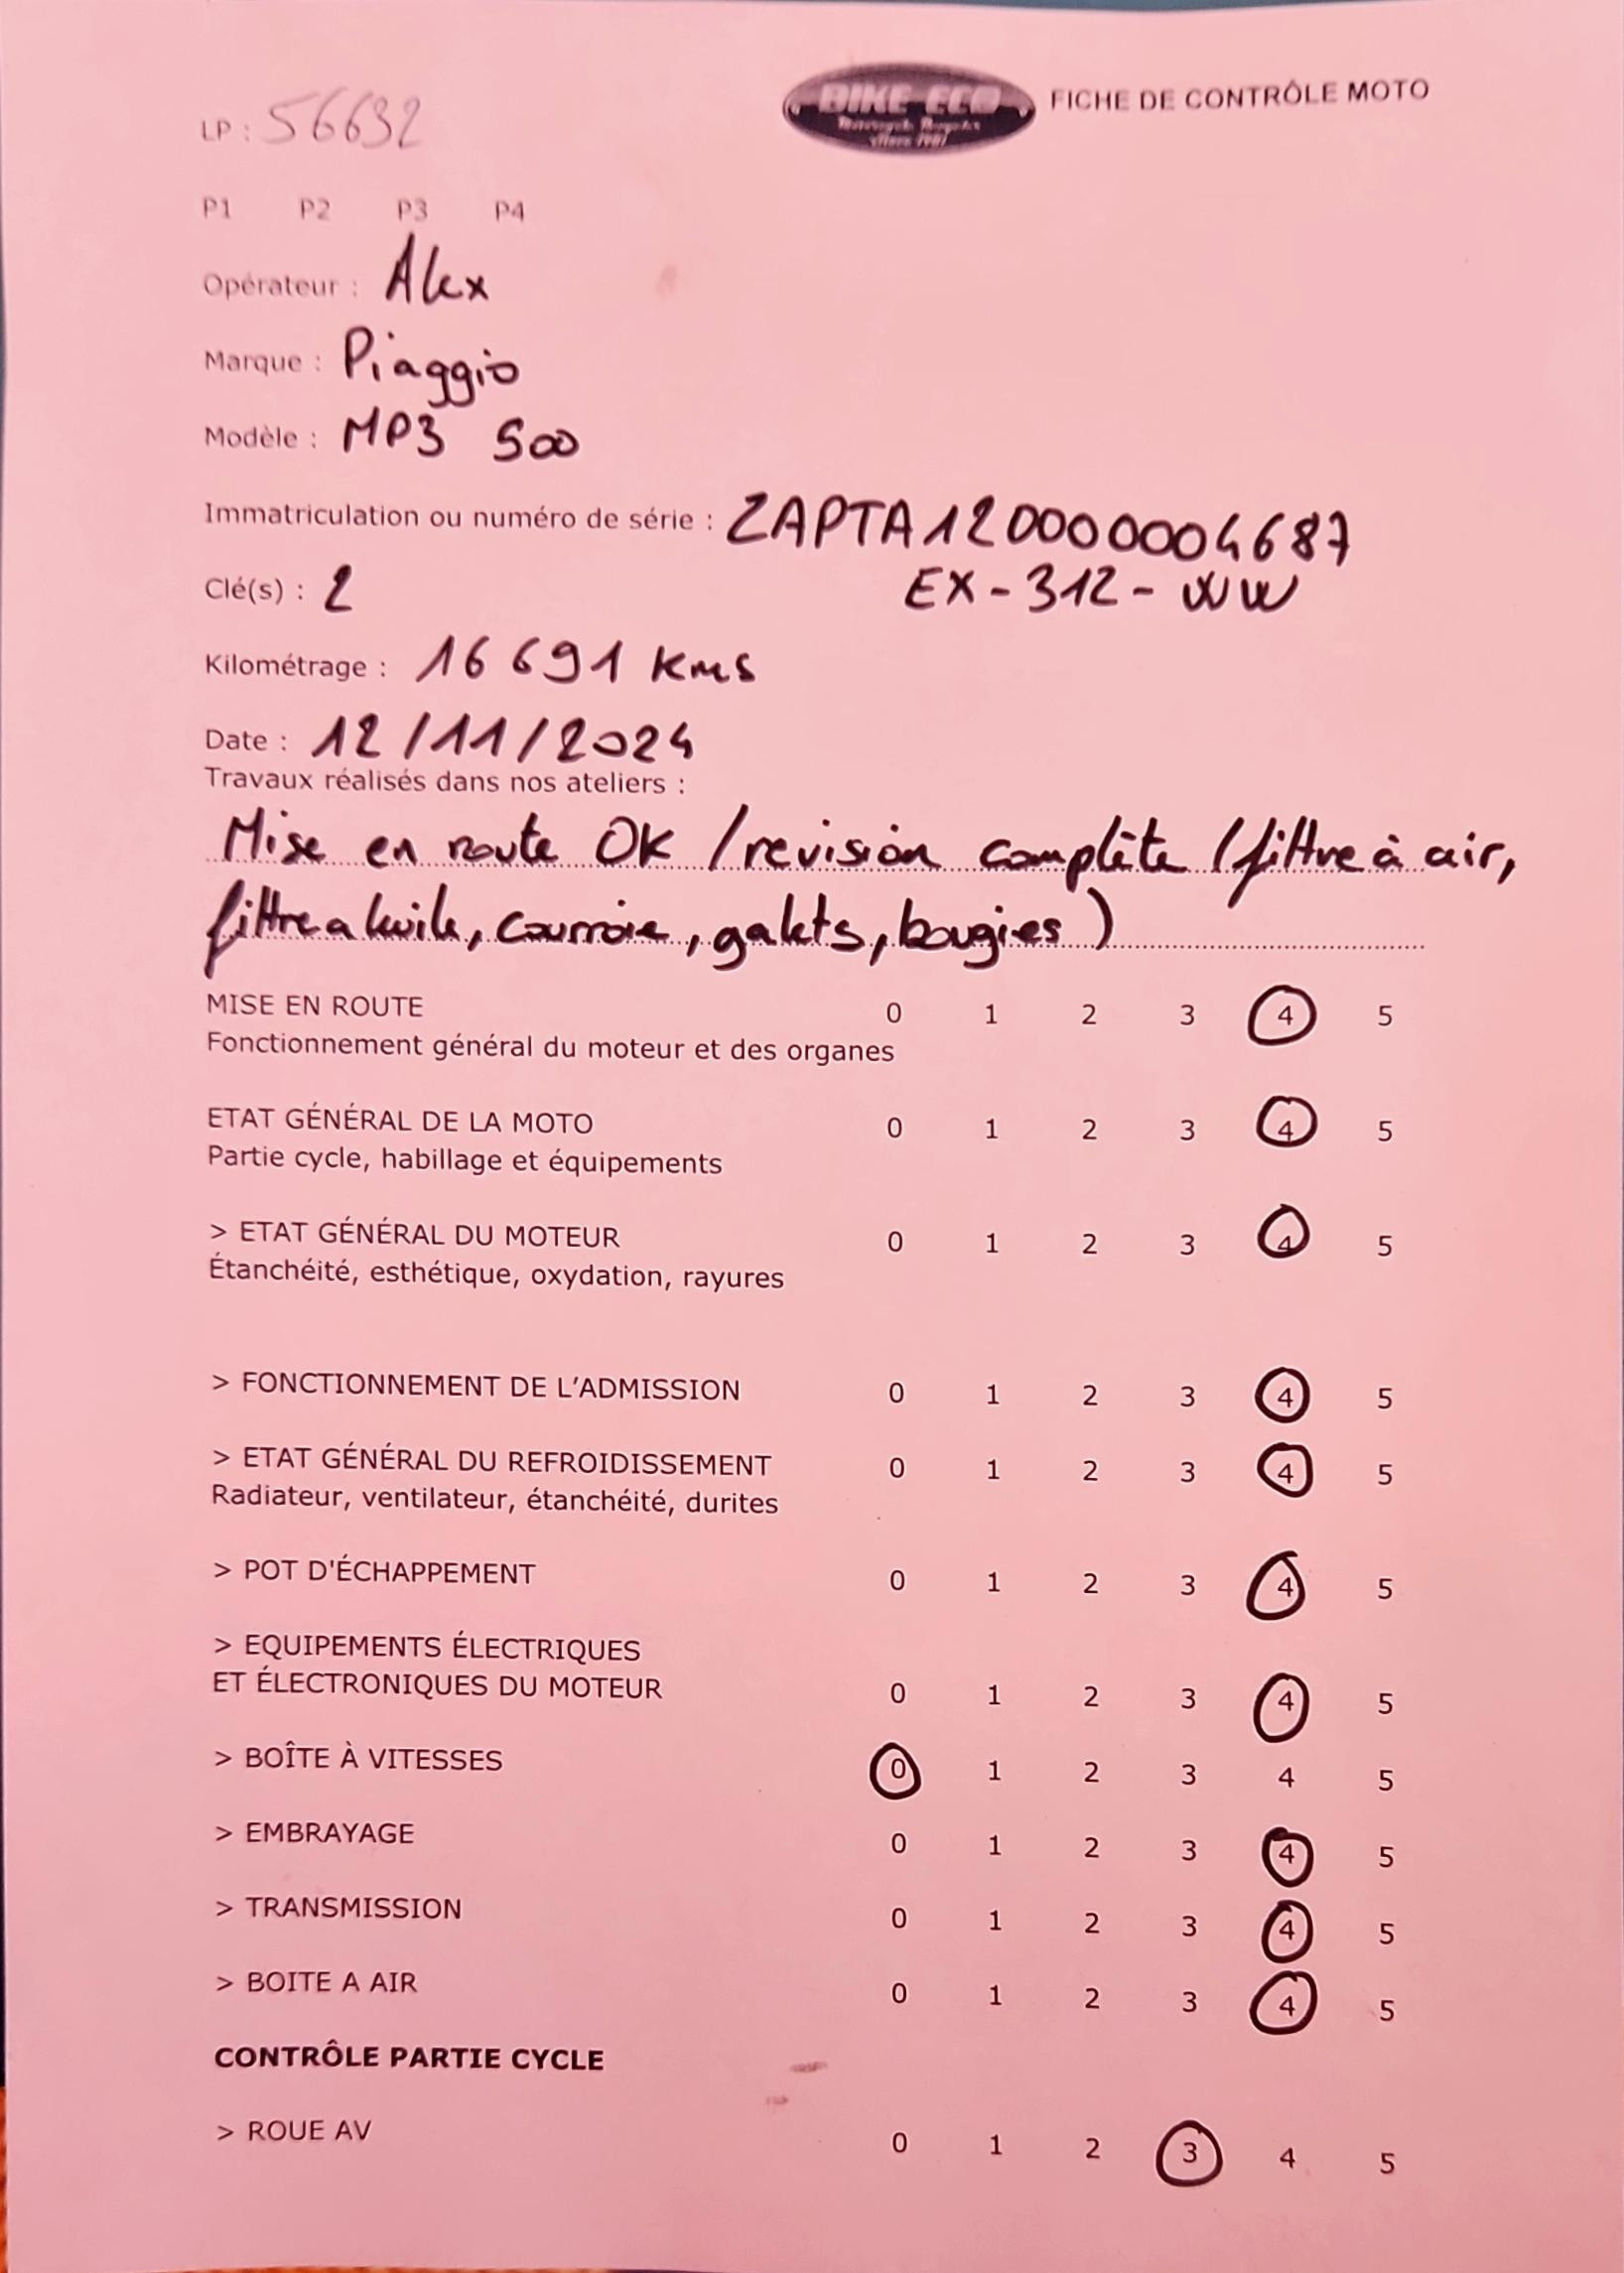 BIKE-ECO
FICHE DE CONTRÔLE MOTO
LP : 56632
P1 P2 P3 P4
Opérateur : Alex
Marque : Piaggio
Modèle : MP3 500
Immatriculation ou numéro de série : ZAPTA120000004687
Clé(s) : 2 EX-312-WW
Kilométrage : 16 691 Kms
Date : 12/11/2024
Travaux réalisés dans nos ateliers :
Mise en route OK / revision complète (filtre à air,
filtre a huile, courroie, galets, bougies)
MISE EN ROUTE 0 1 2 3 4 5
Fonctionnement général du moteur et des organes
ETAT GÉNÉRAL DE LA MOTO 0 1 2 3 4 5
Partie cycle, habillage et équipements
> ETAT GÉNÉRAL DU MOTEUR 0 1 2 3 4 5
Étanchéité, esthétique, oxydation, rayures
> FONCTIONNEMENT DE L'ADMISSION 0 1 2 3 4 5
> ETAT GÉNÉRAL DU REFROIDISSEMENT 0 1 2 3 4 5
Radiateur, ventilateur, étanchéité, durites
> POT D'ÉCHAPPEMENT 0 1 2 3 4 5
> EQUIPEMENTS ÉLECTRIQUES
ET ÉLECTRONIQUES DU MOTEUR 0 1 2 3 4 5
> BOÎTE À VITESSES 0 1 2 3 4 5
> EMBRAYAGE 0 1 2 3 4 5
> TRANSMISSION 0 1 2 3 4 5
> BOITE A AIR 0 1 2 3 4 5
CONTRÔLE PARTIE CYCLE
> ROUE AV 0 1 2 3 4 5